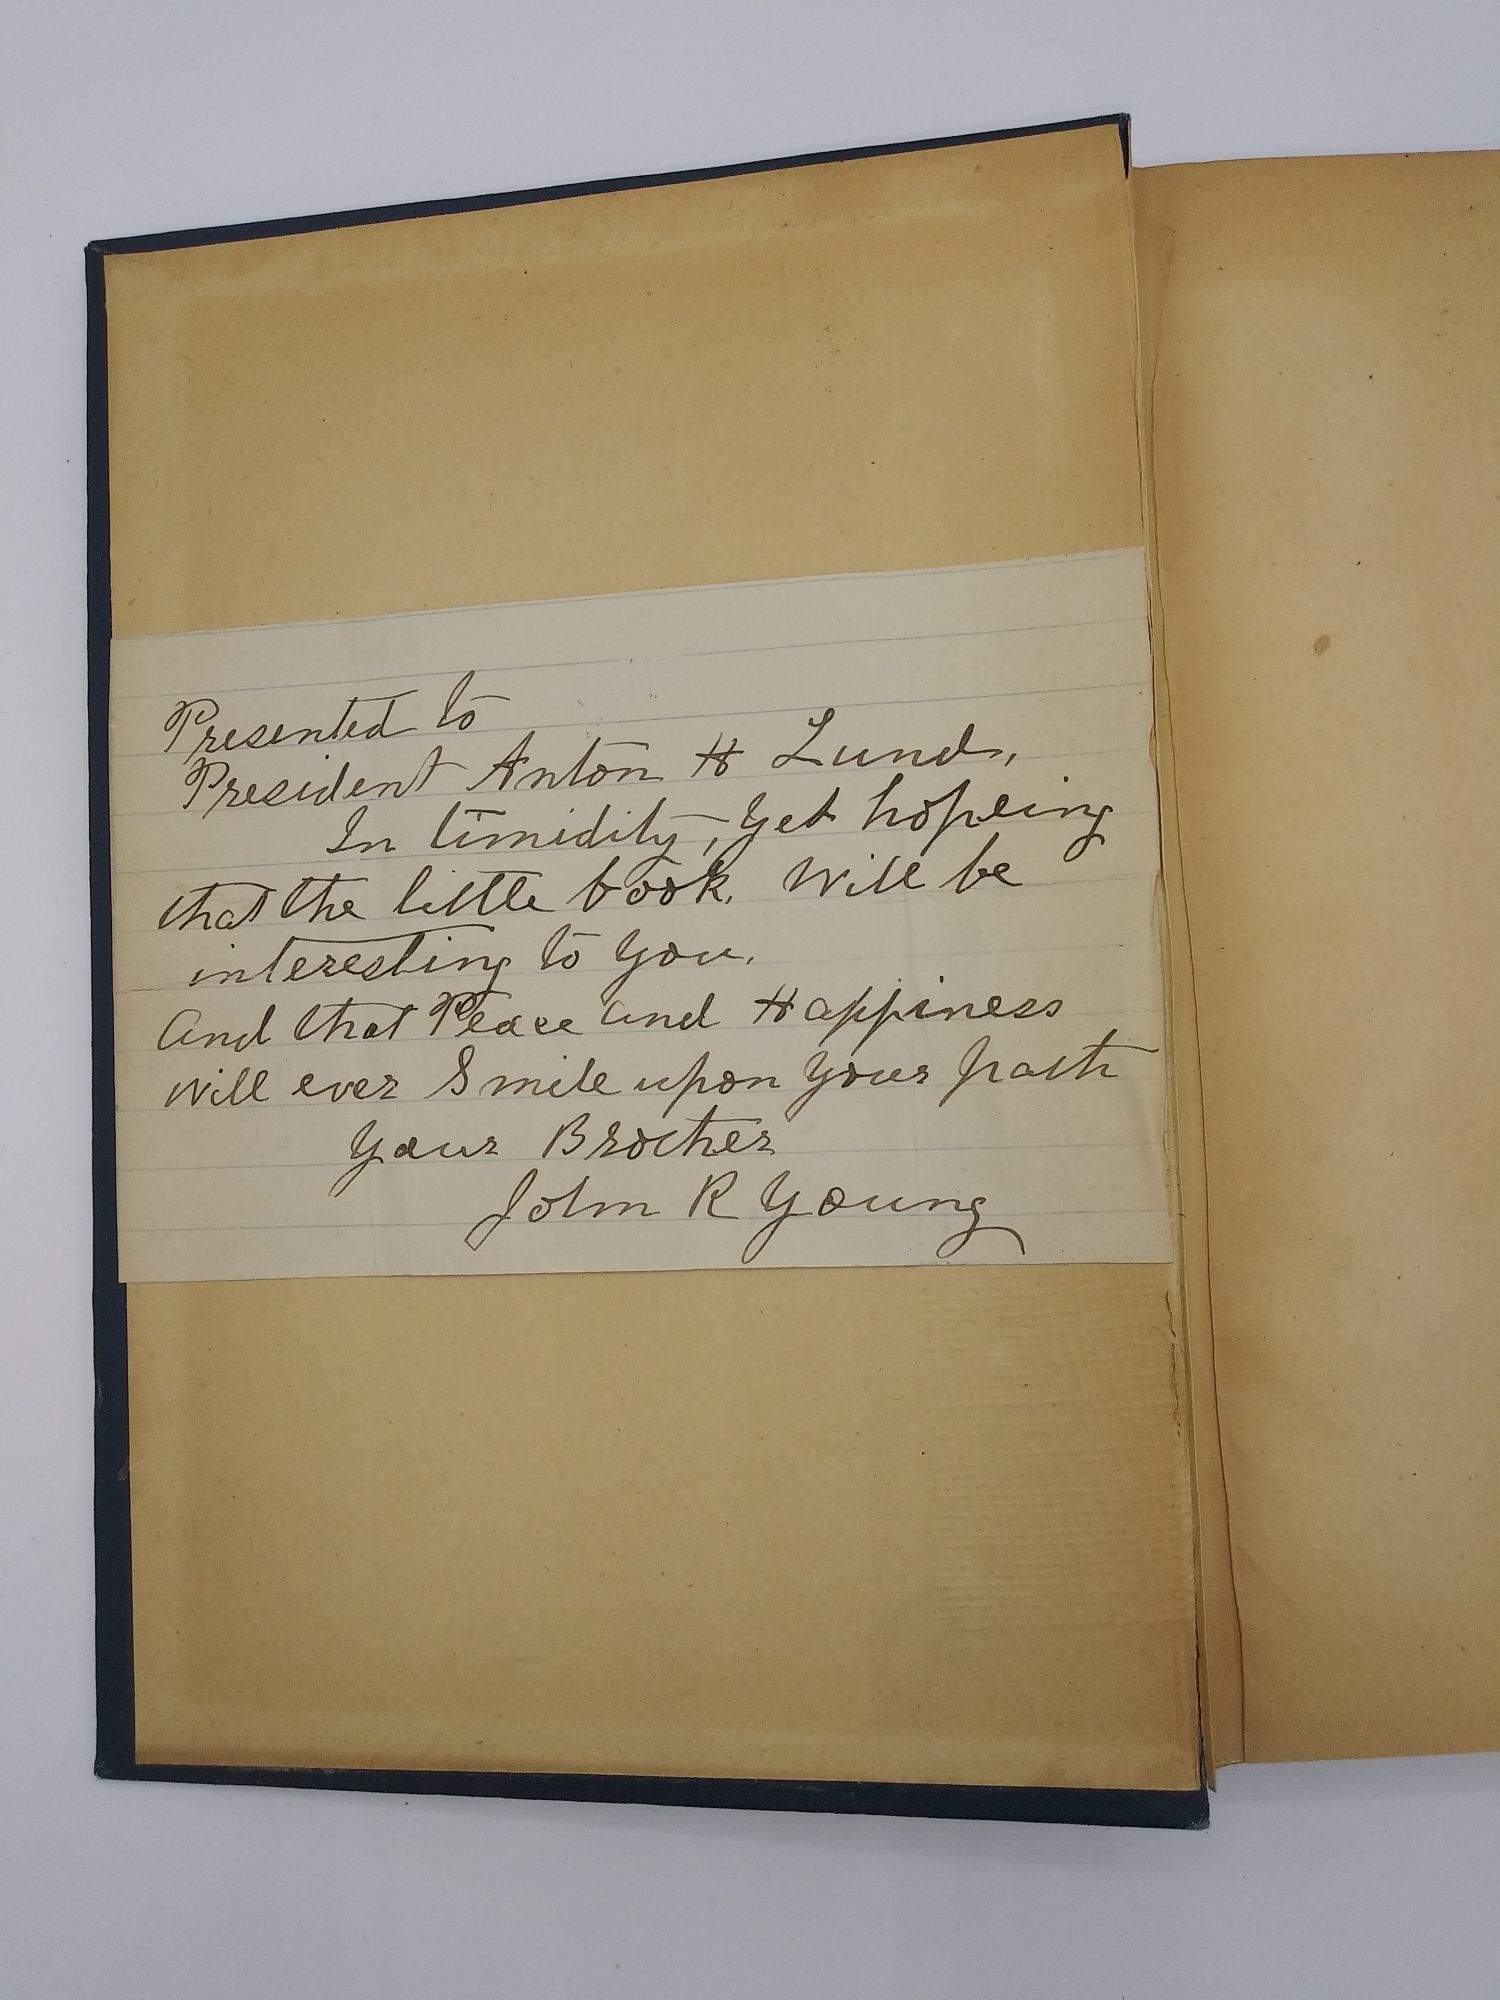 Presented to
President Anton H Lund,
In timidity, yet hopeing
that the little book. Will be
interesting to you.
And that Peace and Happiness
Will ever Smile upon your path
Your Brother
John R Young